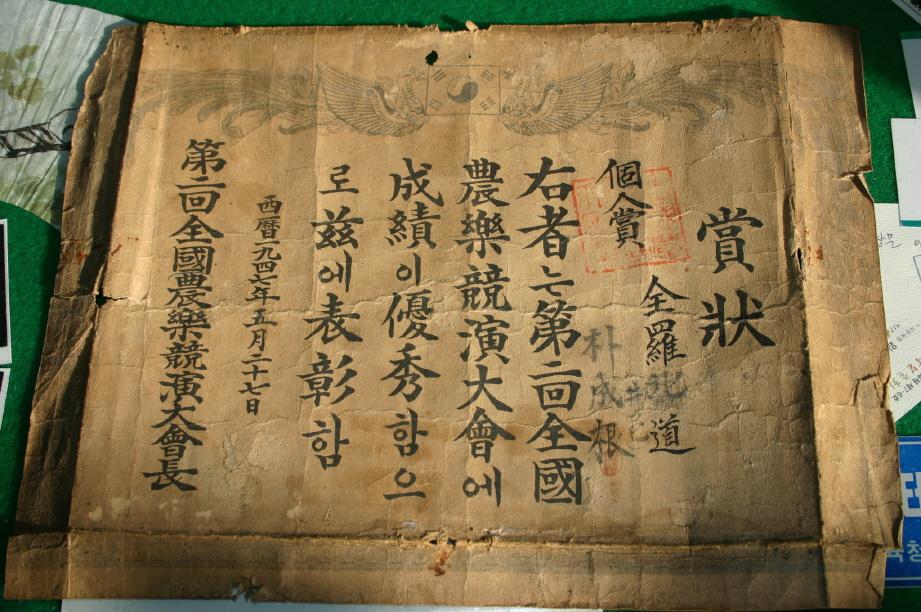 賞狀
個人賞
全羅道
朴成根
右者는第二回全國
農樂競演大會에
成績이優秀함으
로玆에表彰함
西曆一九四七年五月二十七日
第二回全國農樂競演大會長